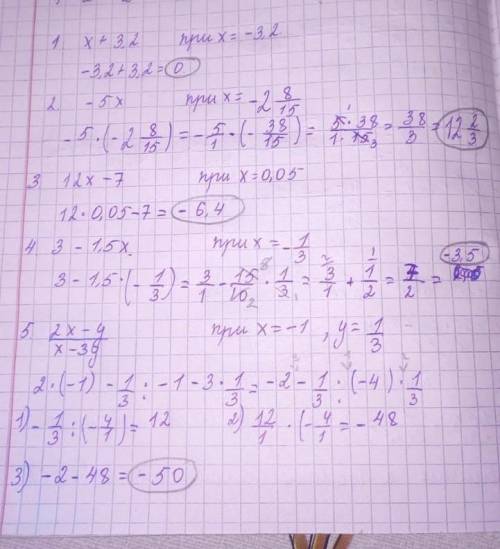 1. x + 3,2 при x = -3,2
-3,2 + 3,2 = 0
2. -5x при x = -2 8/15
-5 · (-2 8/15) = -5/1 · (-38/15) = 5 · 38/1 · 15 3 = 38/3 = 12 2/3
3 12x - 7 при x = 0,05
12 · 0,05 - 7 = -6,4
4 3 - 1,5x при x = -1/3
3 - 1,5 · (-1/3) = 3/1 - 15/10 2 · 1/3 = 3/1 + 1/2 = 7/2 = -3,5
5. 2x - y/x - 3y при x = -1, y = 1/3
2 · (-1) - 1/3 : -1 - 3 · 1/3 = -2 - 1/3 : (-4) · 1/3
1) -1/3 : (-4/1) = 12 2) 12/1 · (-4/1 = -48
3) -2 - 48 = -50